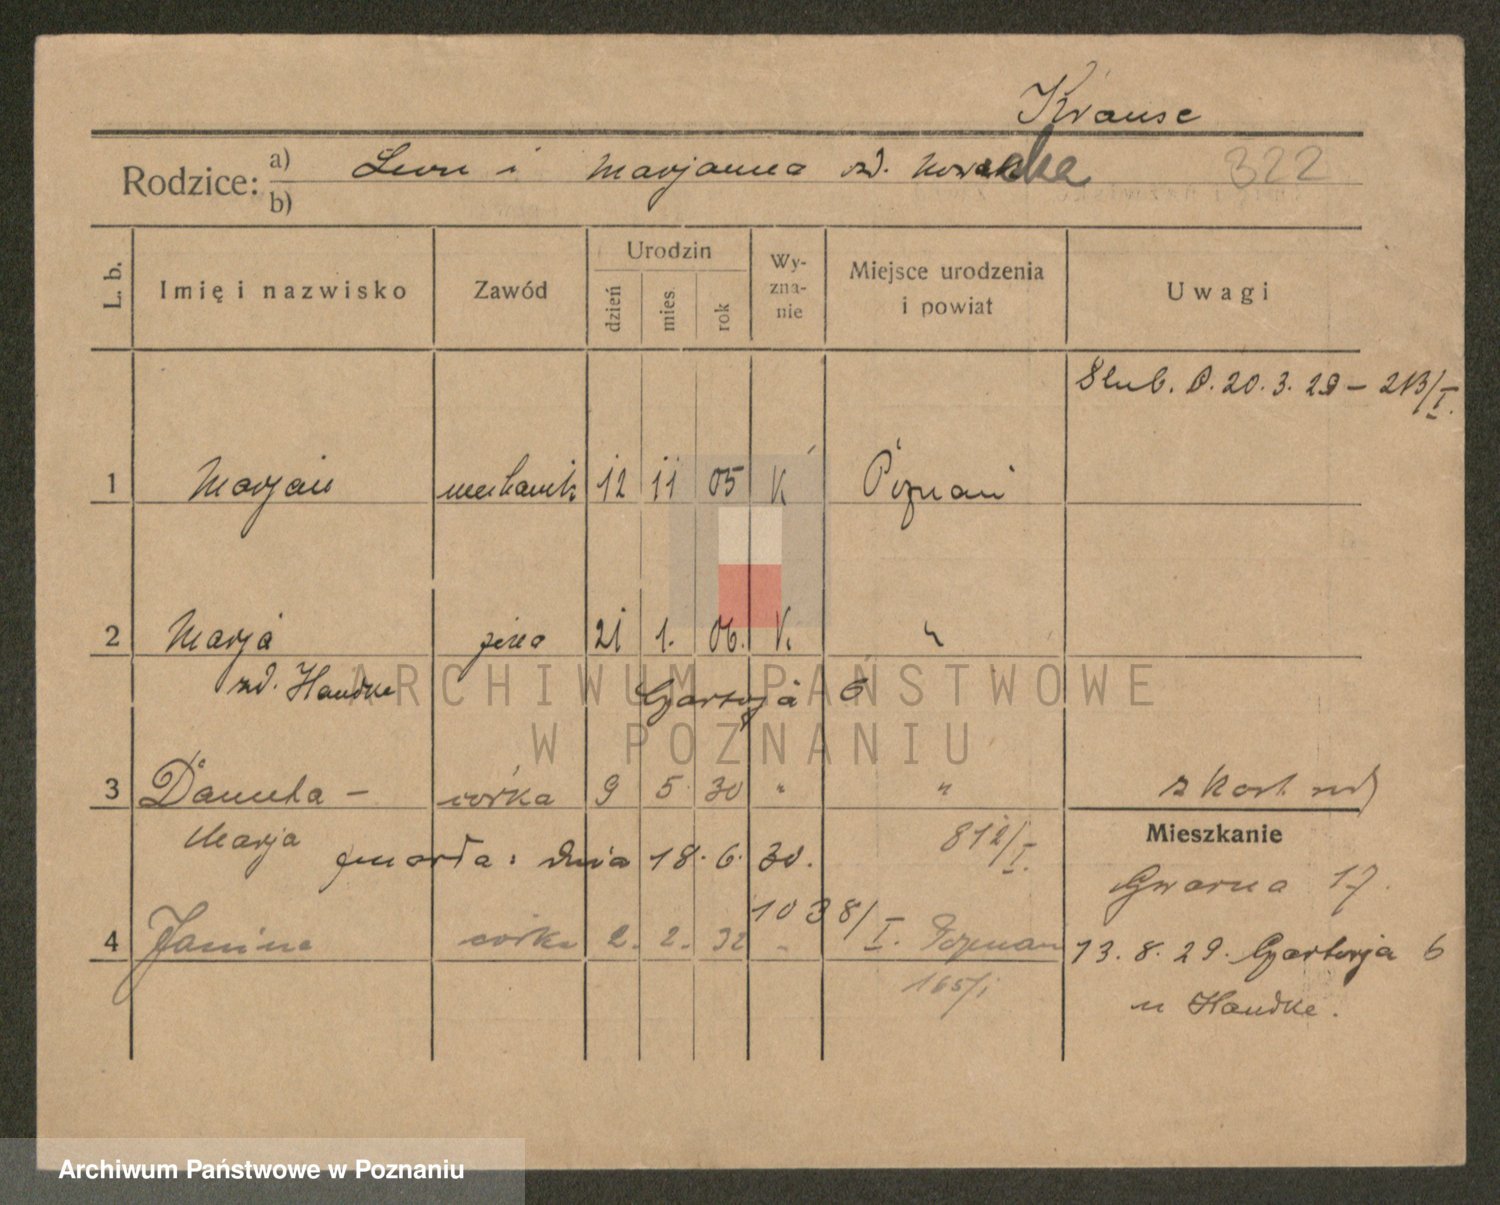 Krause
Rodzice: a) Leon i Marjanna zd. Nowacka 322
b)
L. b. Imię i nazwisko Zawód Urodzin dzień mies. rok Wy-zna-nie Miejsce urodzenia i powiat Uwagi
Slub. P. 20. 3. 29 – 213/I.
1 Marjan mechanik 12 11 05 K Poznań
2 Marja żona 21 1. 06. K. "
zd. Handke Czartorja 6
3 Danuta – córka 9 5 30 " "
Marja zmarła: dnia 18. 6. 30. 812/I.
Mieszkanie
Gwarna 17.
1038/I.
4 Janina córka 2. 2. 32 " Poznań
13. 8. 29. Czartorja 6
165/I
u Handke.
ARCHIWUM PAŃSTWOWE
W POZNANIU
Archiwum Państwowe w Poznaniu